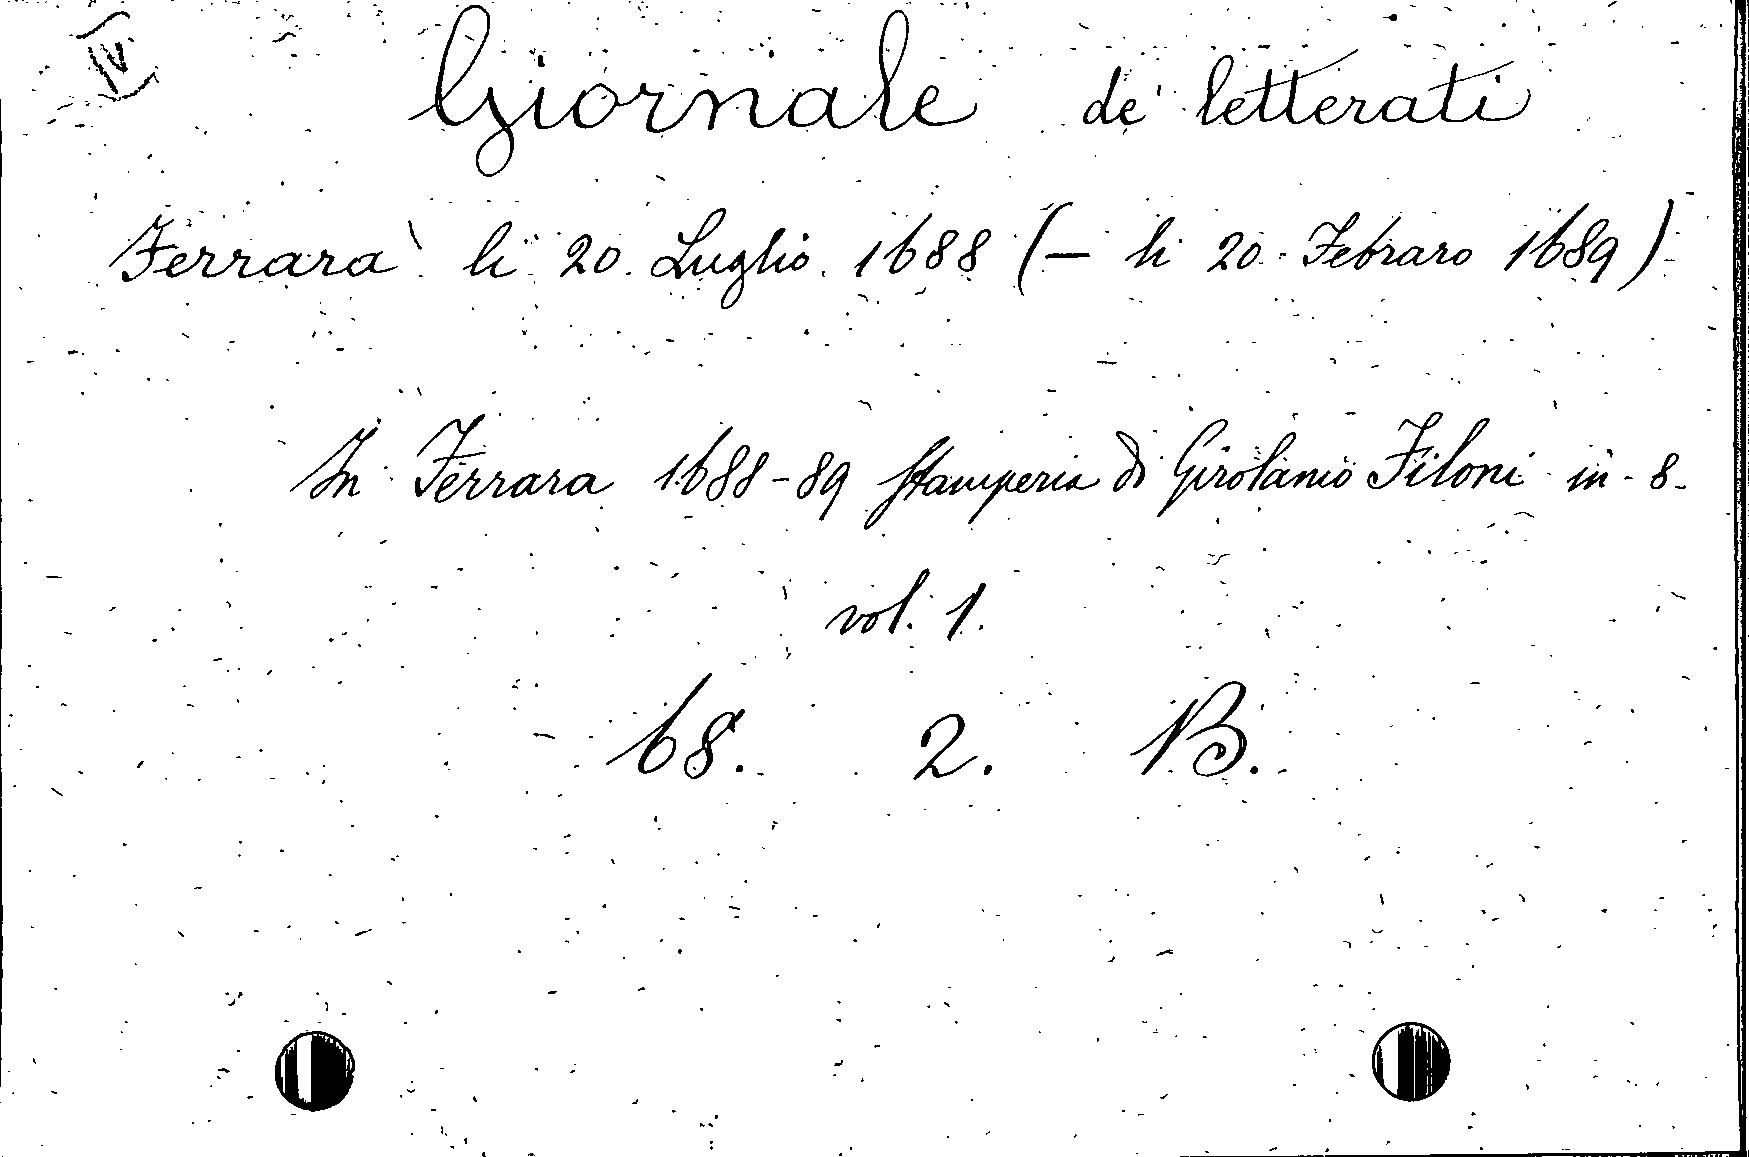 IV
Giornale de' letterati
Ferrara li 20. Luglio 1688 (- li 20. Febraro 1689)
In Ferrara 1688-89 Stamperia di Girolamo Filoni in-8.
vol. 1.
68. 2. B.